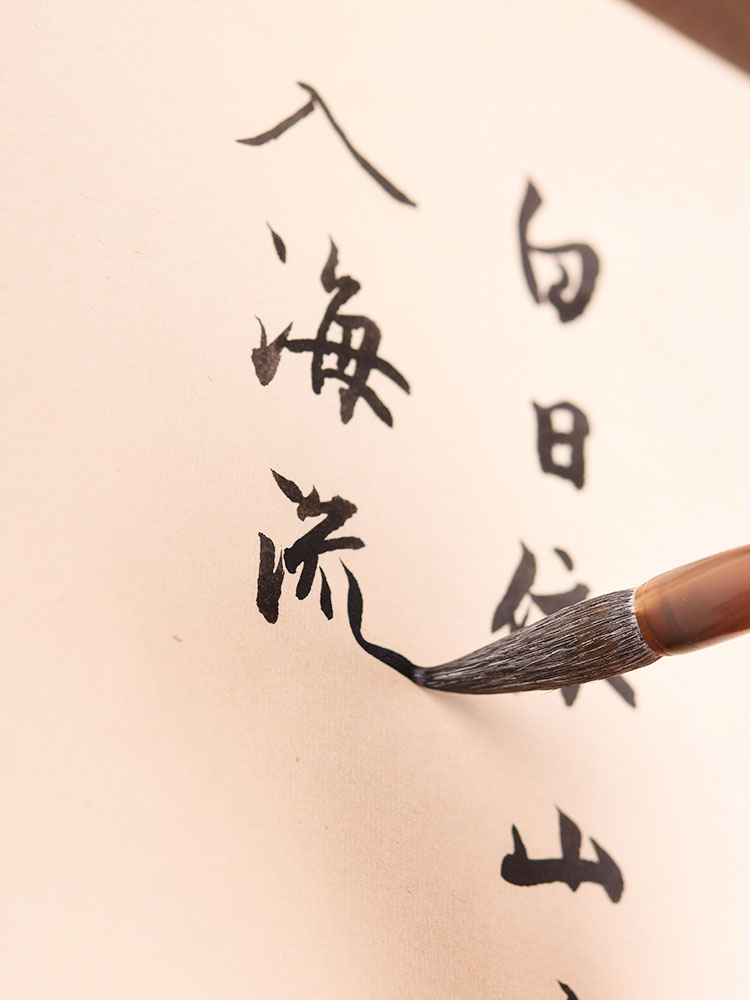 白日依山
入海流